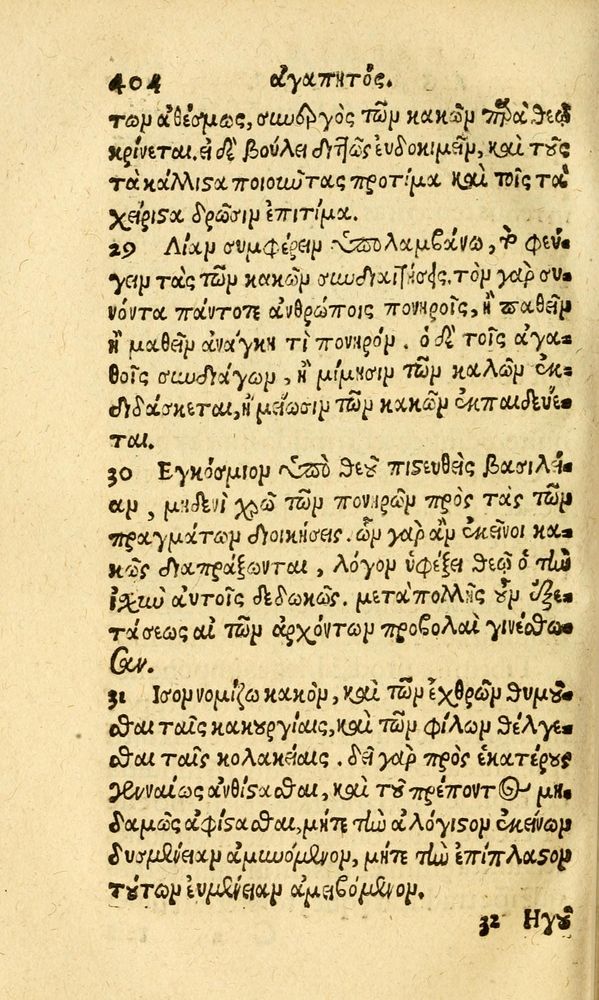 404 ἀγαπητός.
των ἀθέσμως, συνεργὸς τῶν κακῶν παρὰ θεῷ
κρίνεται. εἰ δὲ βούλει διττῶς εὐδοκιμεῖν, καὶ τοὺς
τὰ κάλλιστα ποιοῦντας προτίμα καὶ τοῖς τὰ
χείριστα δρῶσιν ἐπιτίμα.
29 Λίαν συμφέρειν ὑπολαμβάνω, τὸ φεύ-
γειν τὰς τῶν κακῶν συνδιαιτήσεις. τὸν γὰρ συ-
νόντα πάντοτε ἀνθρώποις πονηροῖς, ἢ παθεῖν
ἢ μαθεῖν ἀνάγκη τὶ πονηρόν. ὁ δὲ τοῖς ἀγα-
θοῖς συνδιάγων, ἢ μίμησιν τῶν καλῶν ἐκ-
διδάσκεται, ἢ μείωσιν τῶν κακῶν ἐκπαιδεύε-
ται.
30 Εγκόσμιον ὑπὸ θεοῦ πιστευθεὶς βασιλεί-
αν, μηδενὶ χρῶ τῶν πονηρῶν πρὸς τὰς τῶν
πραγμάτων διοικήσεις. ὧν γὰρ ἂν ἐκεῖνοι κα-
κῶς διαπράξωνται, λόγον ὑφέξει θεῷ ὁ τὴν
ἰχὺν αὐτοῖς δεδωκώς. μετὰ πολλῆς οὖν ἐξε-
τάσεως αἱ τῶν ἀρχόντων προβολαὶ γινέσθω-
σαν.
31 Ισον νομίζω κακόν, καὶ τῶν ἐχθρῶν θυμοῦ-
σθαι ταῖς κακουργίαις, καὶ τῶν φίλων θέλγε-
σθαι ταῖς κολακείαις. δεῖ γὰρ πρὸς ἑκατέρους
γενναίως ἀνθίστασθαι, καὶ τοῦ πρέποντος μη-
δαμῶς ἀφίστασθαι, μήτε τὴν ἀλόγιστον ἐκείνων
δυσμένειαν ἀμυνόμενον, μήτε τὴν ἐπίπλαστον
τούτων εὐμένειαν ἀμειβόμενον.
32 Ηγοῦ